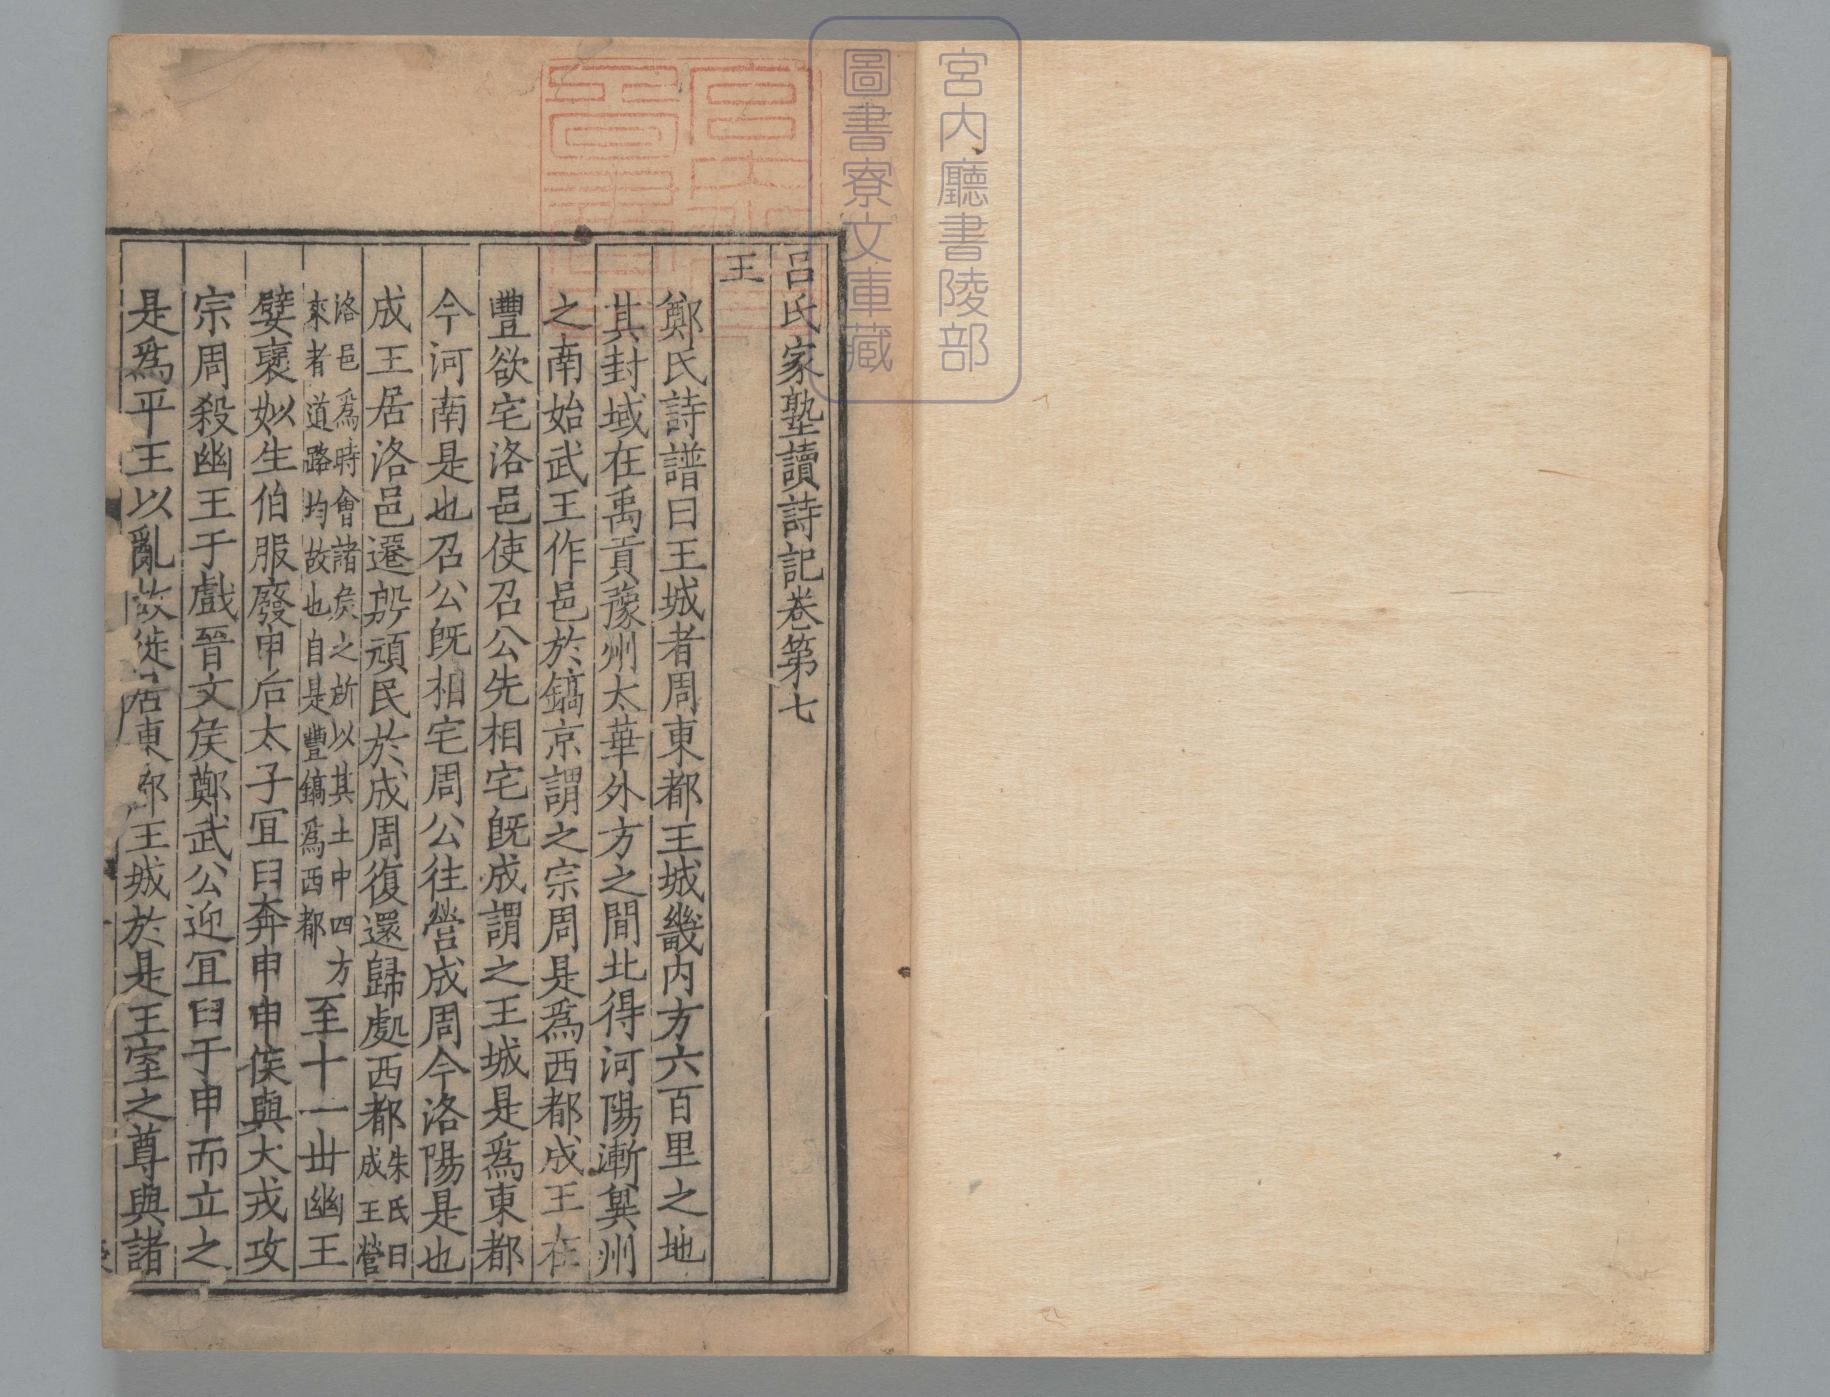 呂氏家塾讀詩記卷第七
王
鄭氏詩譜曰王城者周東都王城畿内方六百里之地
其封域在禹貢豫州太華外方之間北得河陽漸兾州
之南始武王作邑於鎬京謂之宗周是爲西都成王在
豐欲宅洛邑使召公先相宅旣成謂之王城是爲東都
今河南是也召公旣相宅周公往營成周今洛陽是也
成王居洛邑遷殷頑民於成周復還歸處西都朱氏曰成王營
洛邑爲時會諸侯之所以其土中四方來者道路均故也自是豐鎬爲西都至十一丗幽王
嬖襃姒生伯服廢申后太子宜臼奔申申侯與犬戎攻
宗周殺幽王于戲晉文侯鄭武公迎宜臼于申而立之
是爲平王以亂故徙居東都王城於是王室之尊與諸
宮内廳書陵部
圖書寮文庫藏